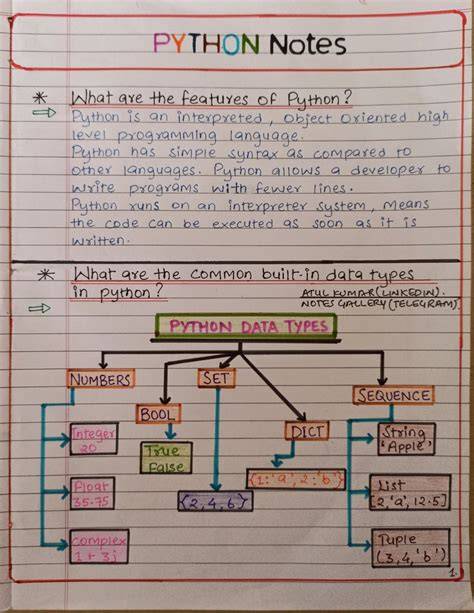 PYTHON Notes
* What are the features of Python?
⇒ Python is an interpreted, Object Oriented high
level programming language.
Python has simple syntax as compared to
other languages. Python allows a developer to
write programs with fewer lines.
Python runs on an interpreter system, means
the code can be executed as soon as it is
written.
* What are the common built-in data types
in python?
ATUL KUMAR (LINKEDIN).
NOTES GALLERY (TELEGRAM).
⇒
PYTHON DATA TYPES
NUMBERS
SET
SEQUENCE
BOOL
DICT
Integer
20
True
False
String
'Apple'
Float
35.75
{2, 4, 6}
{1:'a', 2:'b'}
List
[2,'a',12.5]
Complex
1 + 3j
Tuple
(3,4,'b')
1.